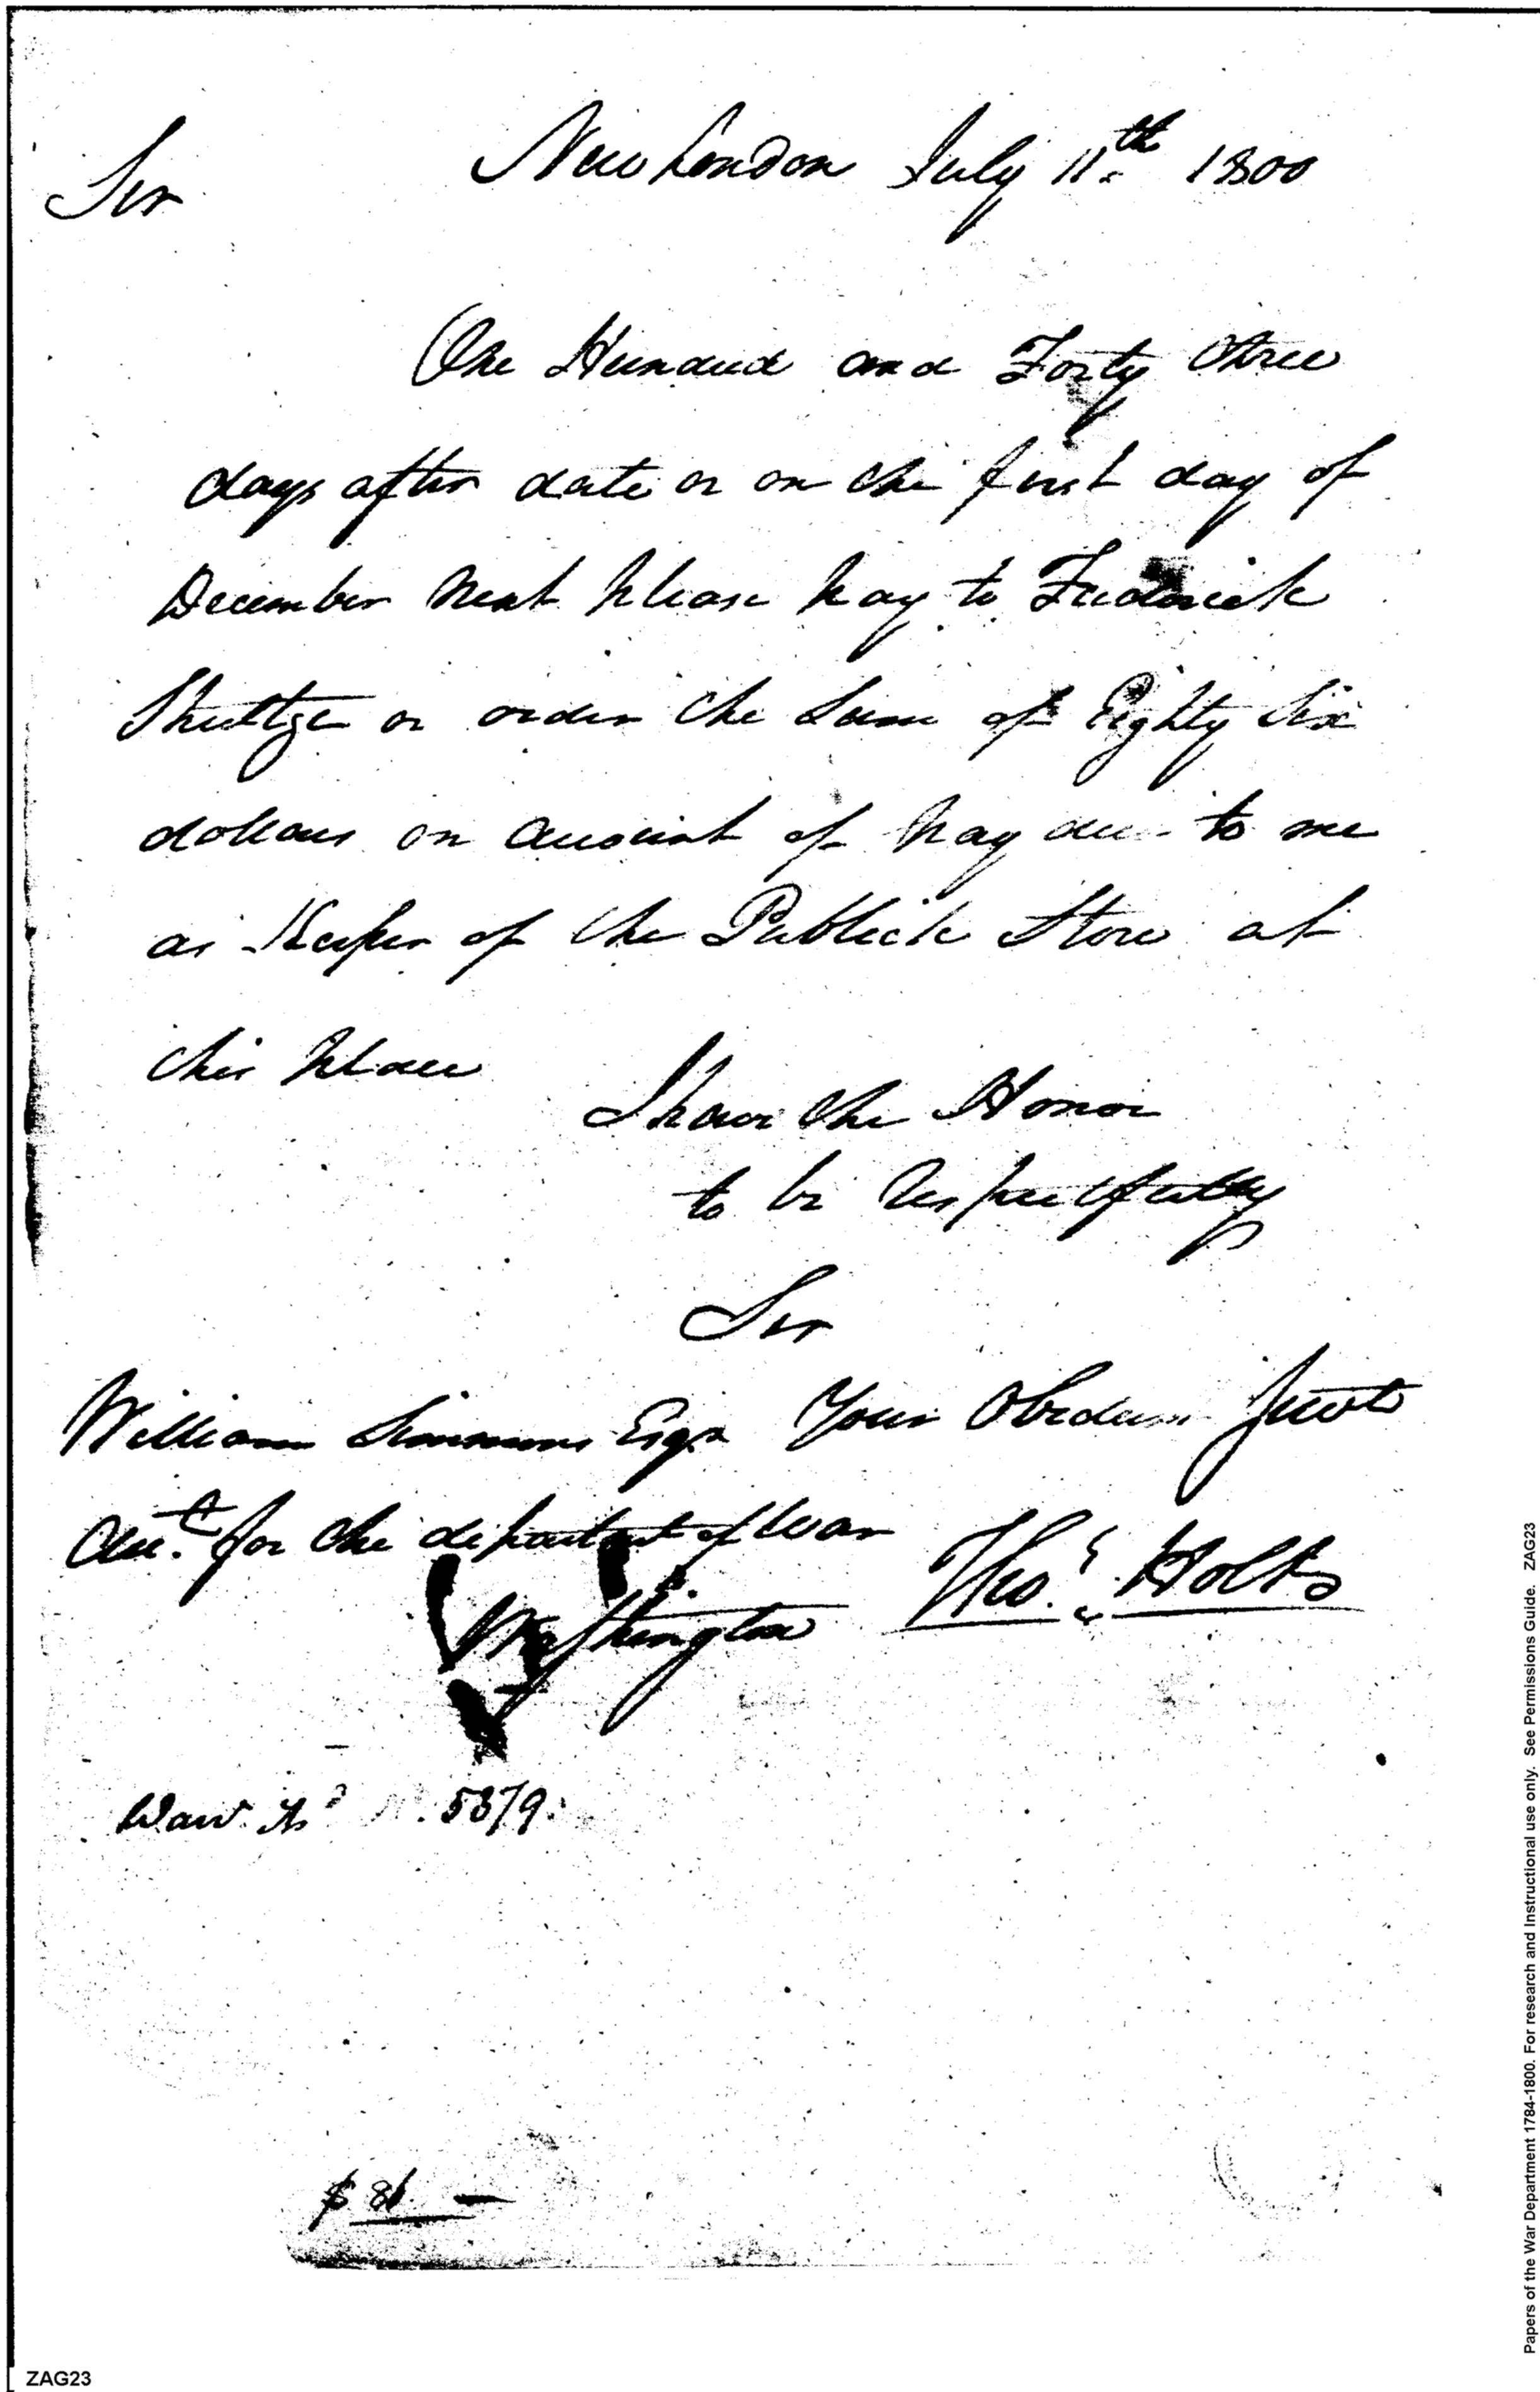 New London July 11th 1800
Sir
One Hundred and Forty three
days after date or on the first day of
December next please pay to Frederick
Shultze or order the Sum of Eighty Six
dollars on account of pay due to me
as Keeper of the Publick Store at
this place
I have the Honor
to be respectfully
Sir
Your Obedient Servt
William Simmons Esqr
Acct. for the departmt of War
Washington
Thos. Holts
Warr. No. 5379.
$ 86 —
ZAG23
Papers of the War Department 1784-1800. For research and Instructional use only. See Permissions Guide. ZAG23